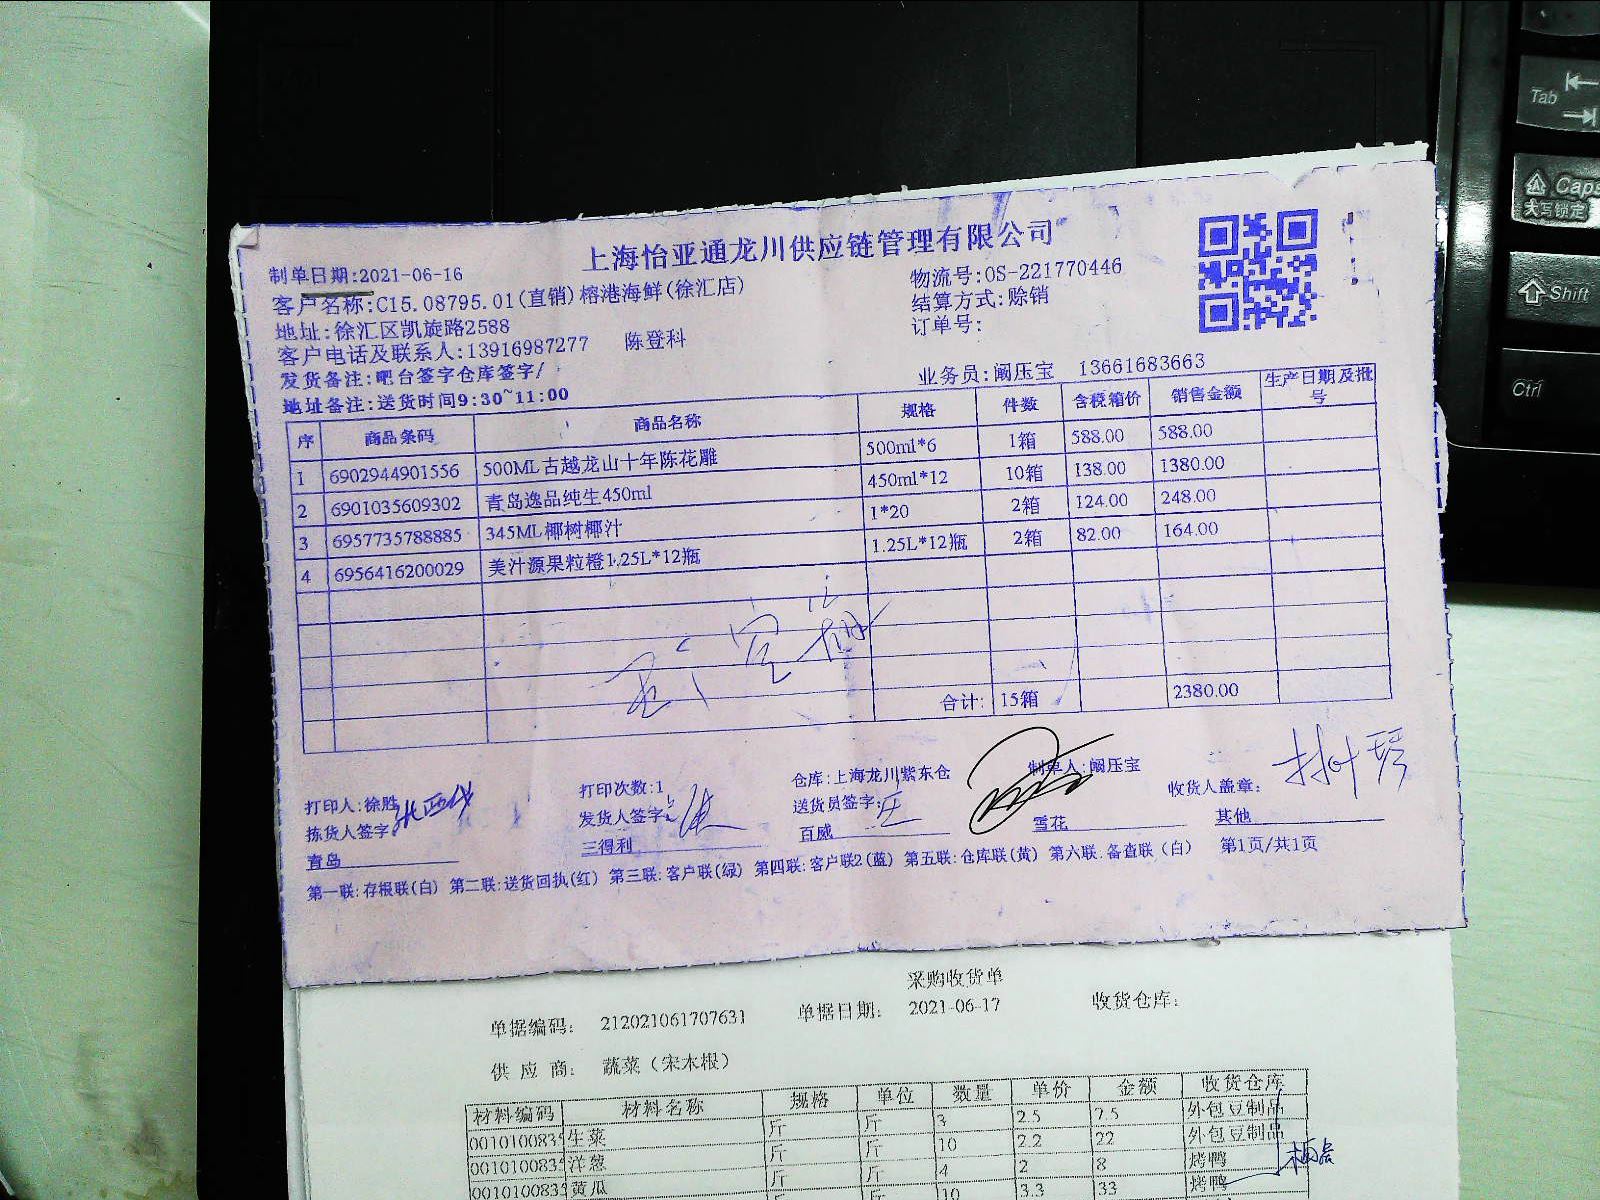 上海怡亚通龙川供应链管理有限公司
制单日期:2021-06-16
物流号:OS-221770446
客户名称:C15.08795.01(直销)榕港海鲜(徐汇店)
结算方式:赊销
地址:徐汇区凯旋路2588
订单号:
客户电话及联系人:13916987277 陈登科
发货备注:吧台签字仓库签字/
业务员:阚压宝 13661683663
地址备注:送货时间9:30~11:00
序 商品条码 商品名称 规格 件数 含税箱价 销售金额 生产日期及批号
1 6902944901556 500ML古越龙山十年陈花雕 500ml*6 1箱 588.00 588.00
2 6901035609302 青岛逸品纯生450ml 450ml*12 10箱 138.00 1380.00
3 6957735788885 345ML椰树椰汁 1*20 2箱 124.00 248.00
4 6956416200029 美汁源果粒橙1.25L*12瓶 1.25L*12瓶 2箱 82.00 164.00
合计: 15箱 2380.00
打印人:徐胜 打印次数:1 仓库:上海龙川紫东仓 制单人:阚压宝 收货人盖章:
拣货人签字 发货人签字: 送货员签字:
青岛 三得利 百威 雪花 其他
第一联:存根联(白) 第二联:送货回执(红) 第三联:客户联(绿) 第四联:客户联2(蓝) 第五联:仓库联(黄) 第六联.备查联(白) 第1页/共1页
采购收货单
单据编码: 212021061707631 单据日期: 2021-06-17 收货仓库:
供应商: 蔬菜(宋木根)
材料编码 材料名称 规格 单位 数量 单价 金额 收货仓库
001010083 生菜 斤 斤 3 2.5 7.5 外包豆制品
001010083 洋葱 斤 斤 10 2.2 22 外包豆制品
001010083 黄瓜 斤 斤 4 2 8 烤鸭
10 3.3 33 烤鸭